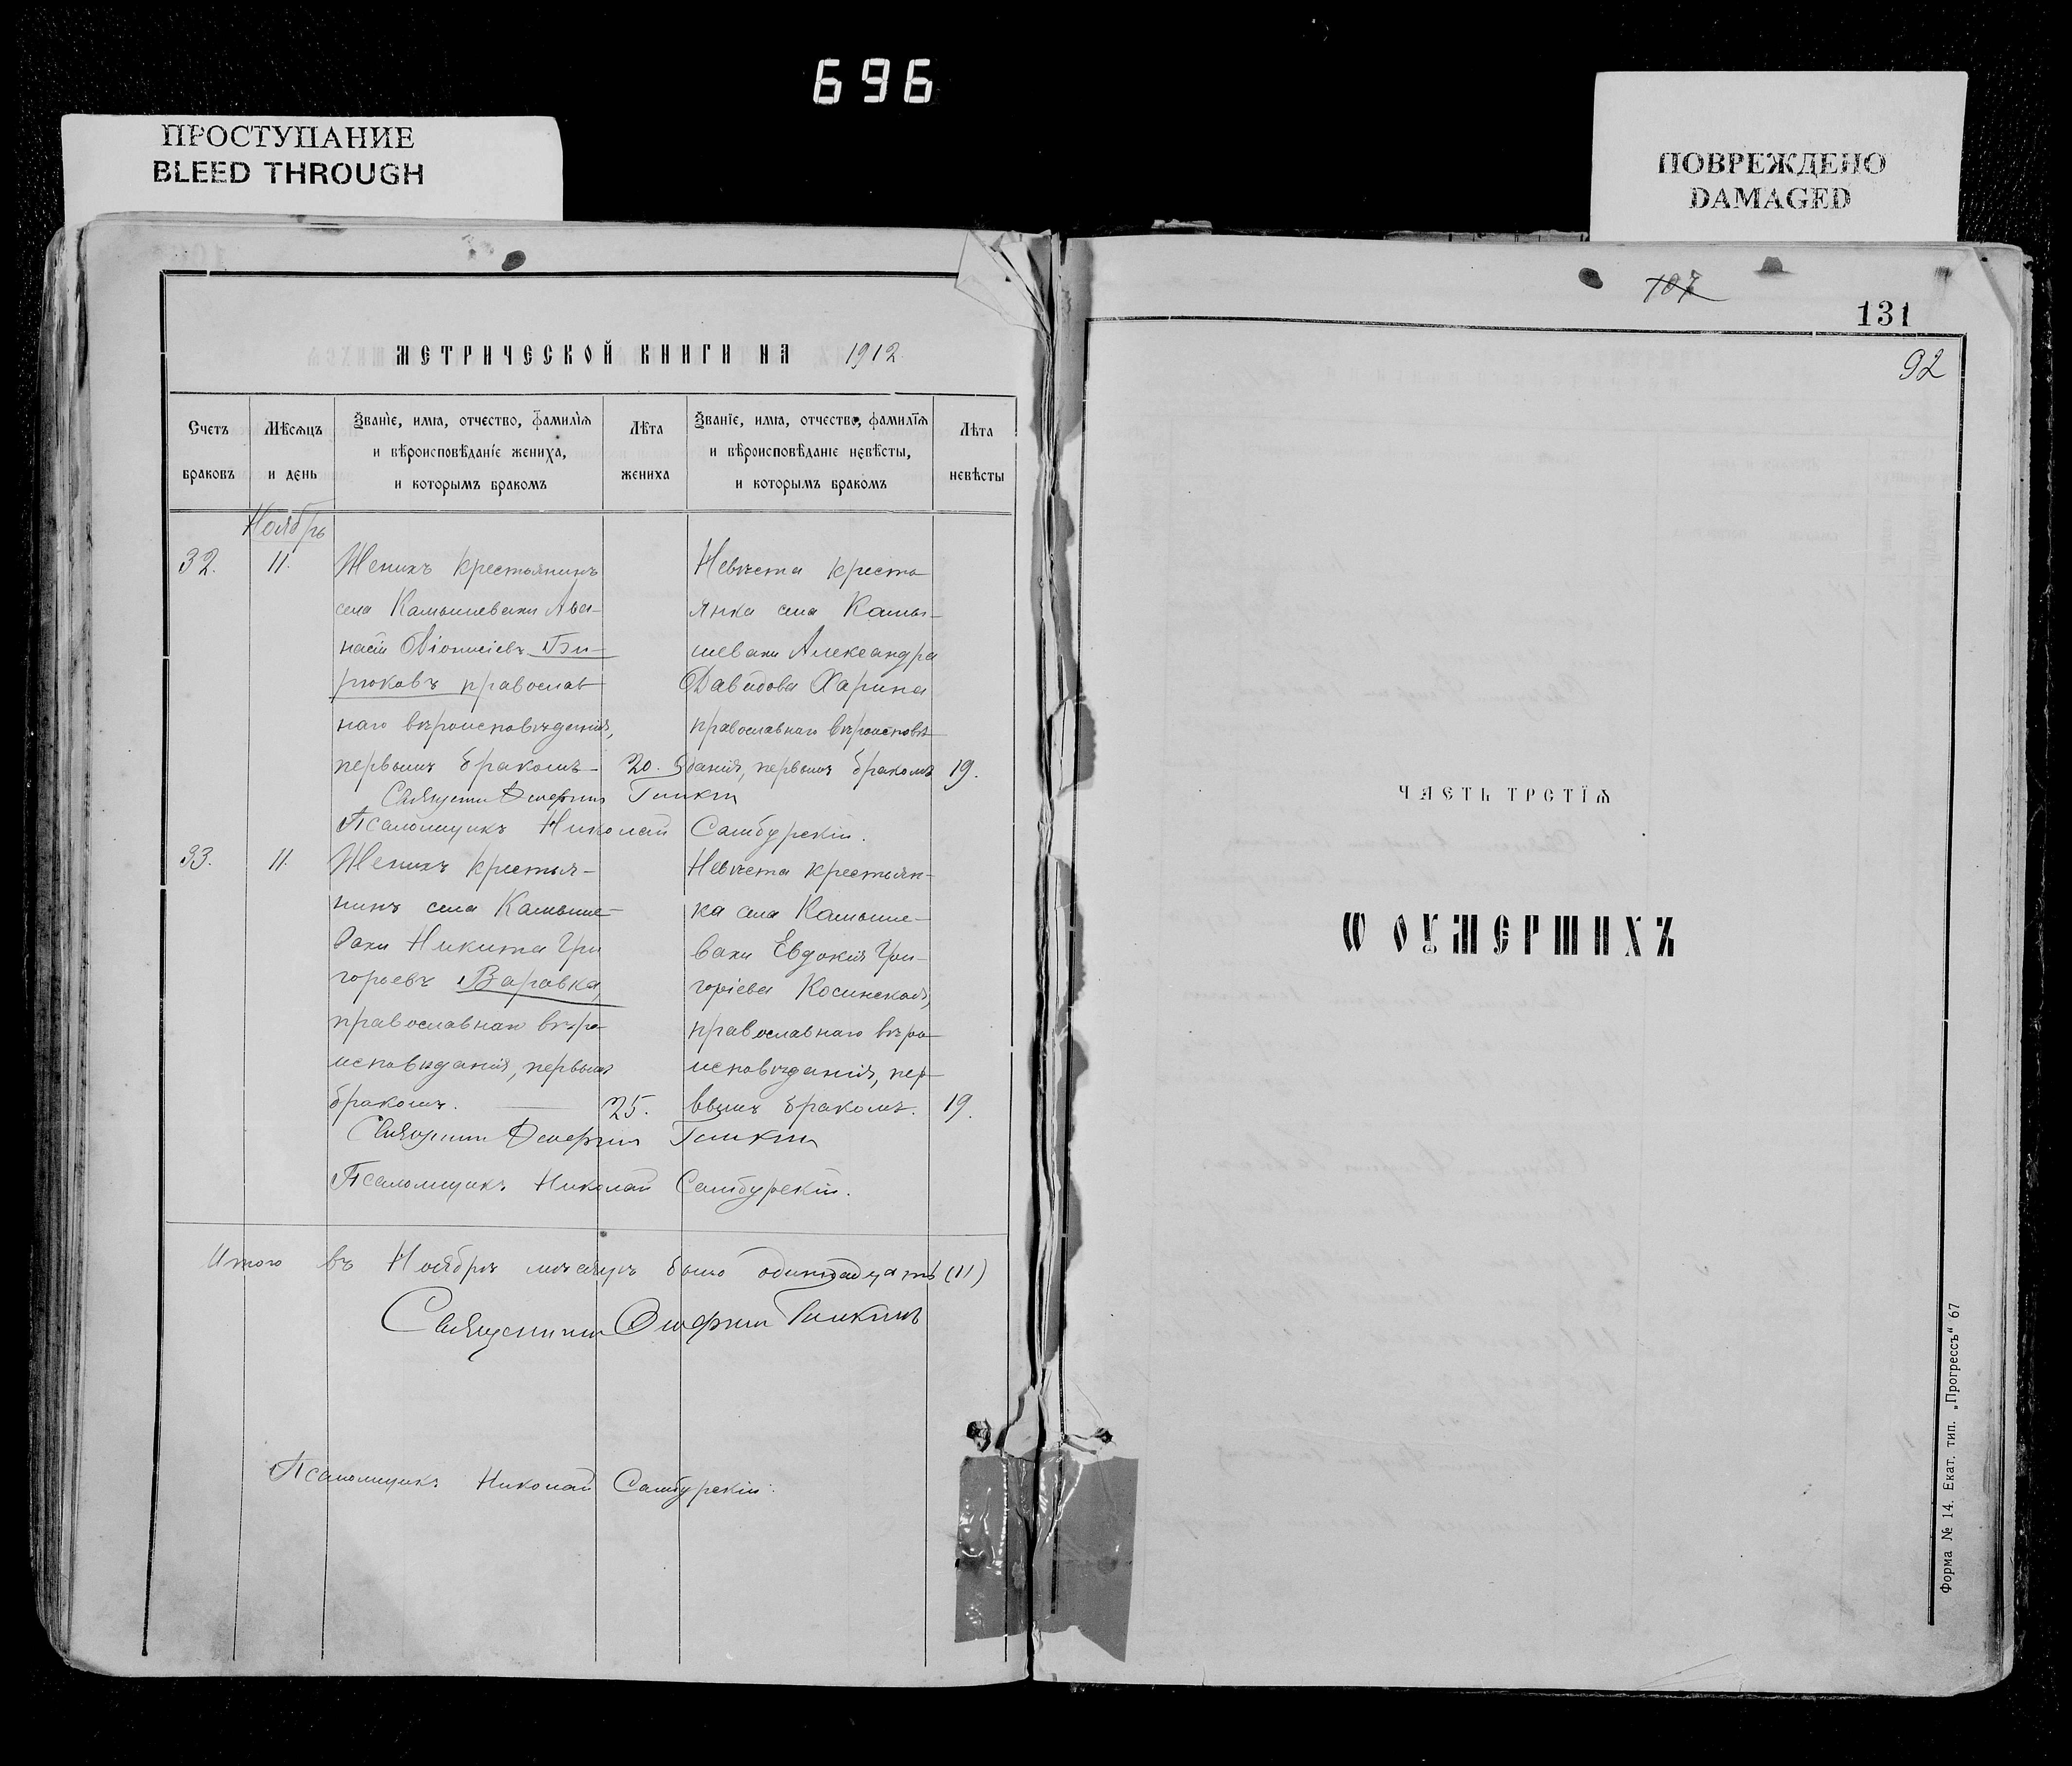 696
ПРОСТУПАНИЕ
BLEED THROUGH
ПОВРЕЖДЕНО
DAMAGED
МЕТРИЧЕСКОЙ КНИГИ НА 1912.
Счетъ браковъ
Мѣсяцъ и день
Званіе, имя, отчество, фамилія
и вѣроисповѣданіе жениха,
и которымъ бракомъ
Лѣта жениха
Званіе, имя, отчество, фамилія
и вѣроисповѣданіе невѣсты,
и которымъ бракомъ
Лѣта невѣсты
Ноябрь
32. 11.
Женихъ крестьянинъ
села Камышевахи Аѳа-
насій Діонисіевъ Би-
рюковъ православ
наго вѣроисповѣданія,
первымъ бракомъ
20.
Невѣста кресть
янка села Камы-
шевахи Александра
Давидова Харина
православнаго вѣроисповѣ-
данія, первымъ бракомъ
19.
Священникъ Гликинъ
Псаломщикъ Николай Самбурскій.
33. 11.
Женихъ крестья-
нинъ села Камыше-
вахи Никита Гри
горьевъ Варавка,
православнаго вѣро-
исповѣданія, первымъ
бракомъ.
25.
Невѣста крестьян-
ка села Камыше-
вахи Евдокія Гри-
горіева Косинская,
православнаго вѣро
исповѣданія, пер-
вымъ бракомъ.
19.
Священникъ Гликинъ
Псаломщикъ Николай Самбурскій.
Итого въ Ноябрѣ мѣсяцѣ было одинадцать (11)
Священникъ Гликинъ
Псаломщикъ Николай Самбурскій.
107
131
92
ЧАСТЬ ТРЕТІЯ
Ѡ ОУМЕРШИХЪ
Форма № 14. Екат. тип. „Прогрессъ“ 67